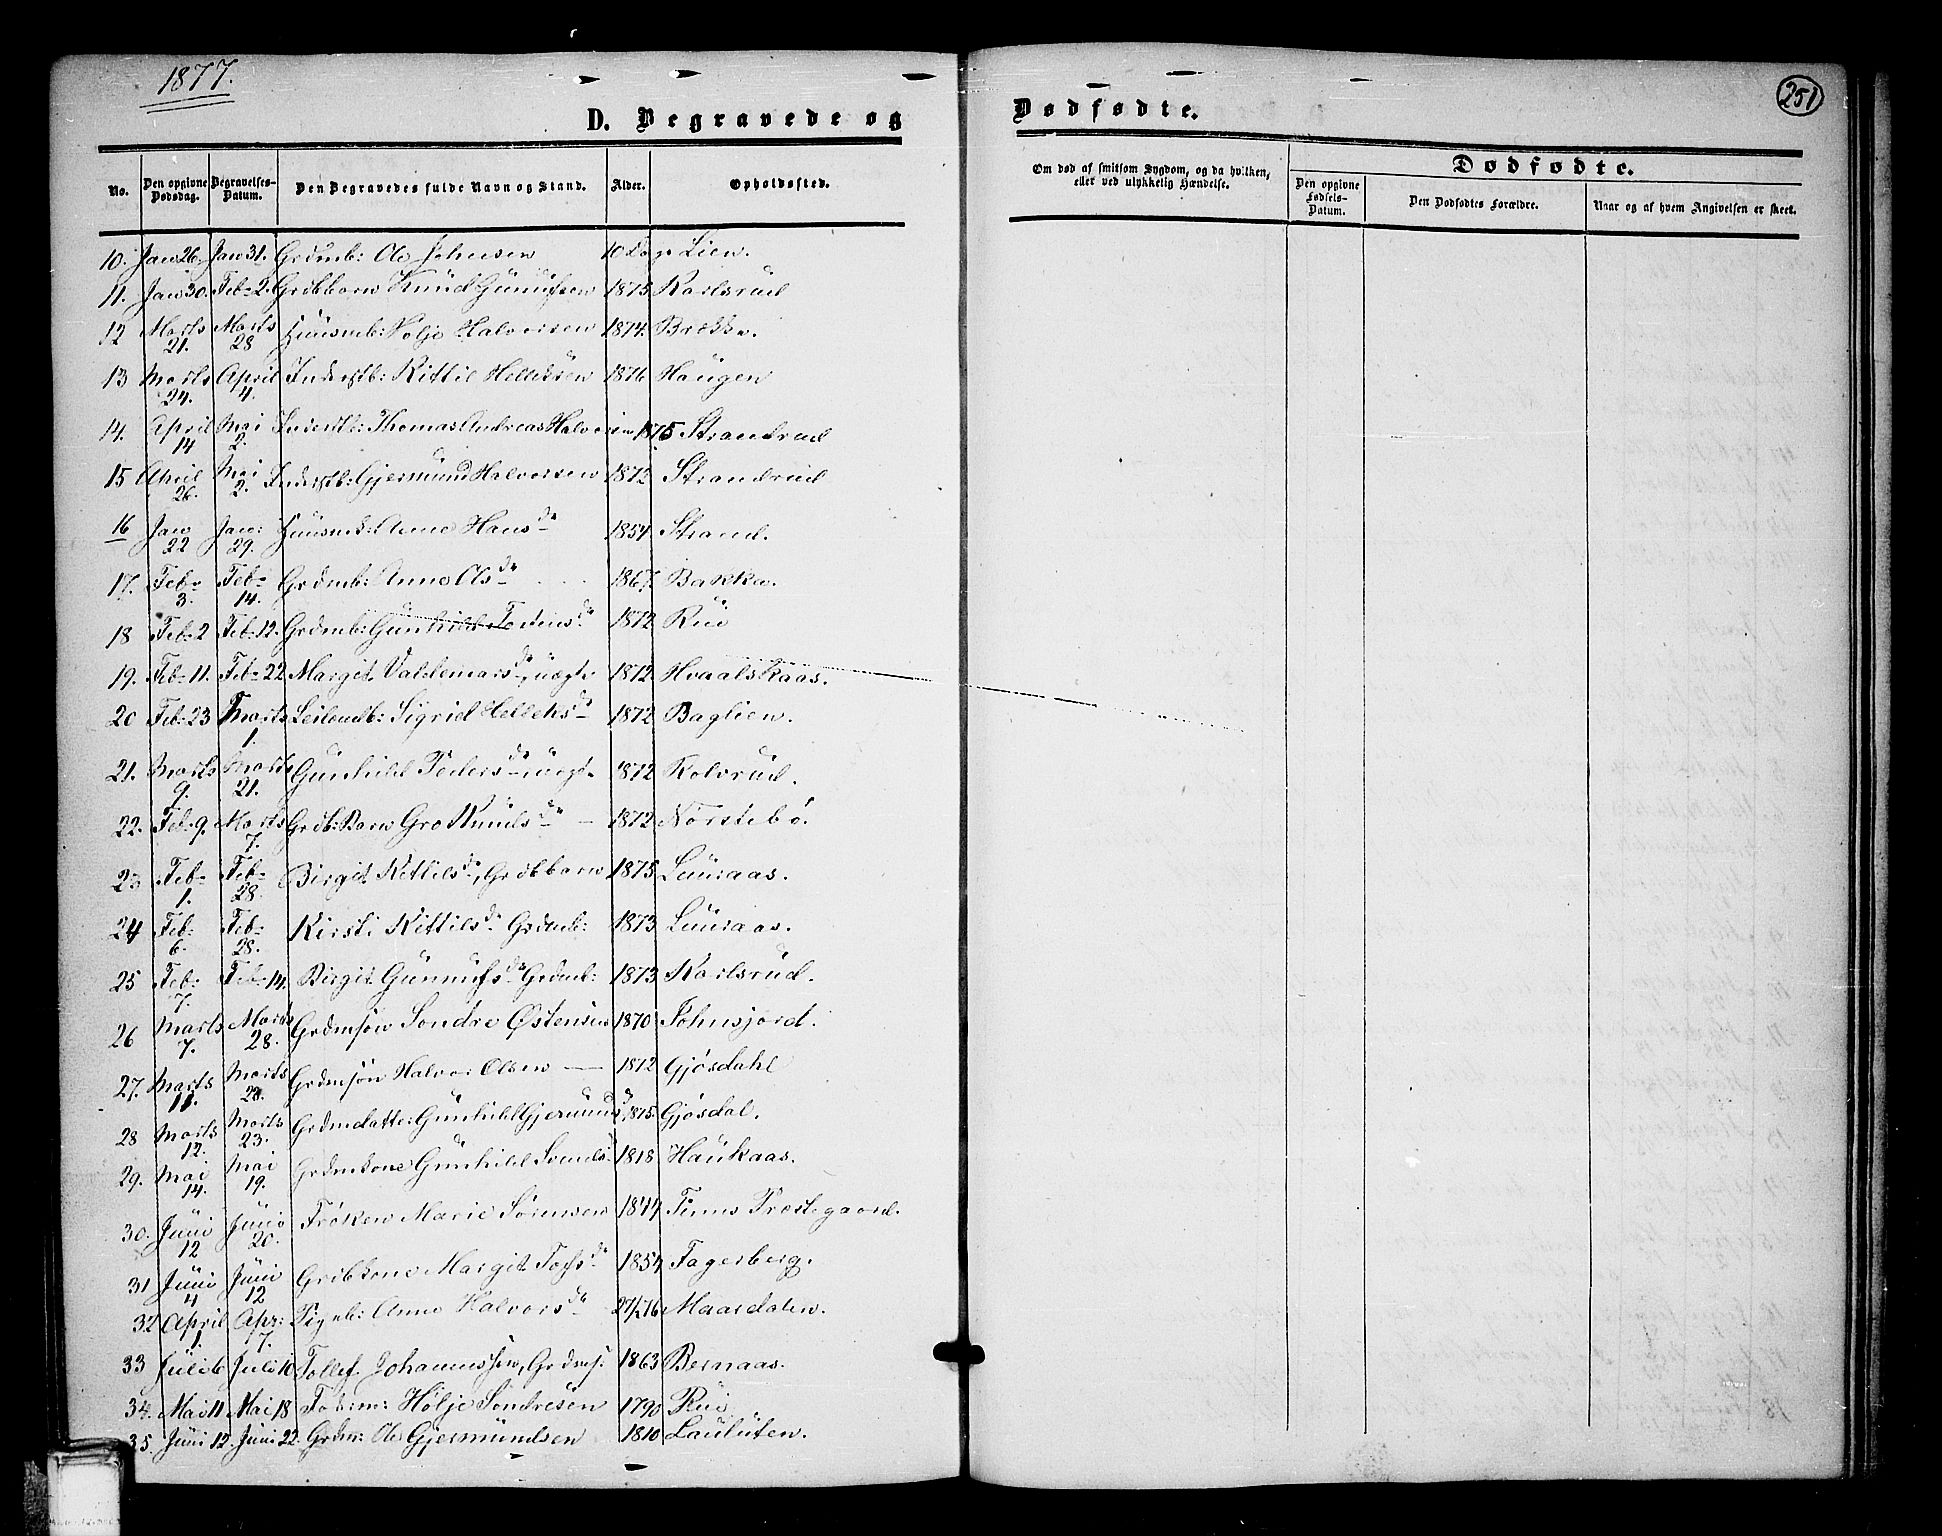 1877.
251
D. Begravede og
Dødfødte.
No.
Den opgivne Dødsdag.
Begravelses-Datum.
Den Begravedes fulde Navn og Stand.
Alder.
Opholdssted.
Om død af smitsom Sygdom, og da hvilken, eller ved ulykkelig Hændelse.
Dødfødte.
Den opgivne Fødsels-Datum.
Den Dødfødtes Forældre.
Naar og af hvem Angivelsen er skeet.
10. Jan 26. Jan 31. Grdmb: Ole Johnsen 10 Dage Lien.
11. Jan 30. Feb 2. Grdbbarn Knud Gunulfsen 1875 Karlsrud
12 Marts 21. Marts 28 Huusmb: Holje Halvorsen 1874. Brekke.
13 Marts 24. April 4. Inderstb: Kittil Helleksen 1876 Haugen
14. April 14 Mai 2. Inderstb: Thomas Andreas Halvorsen 1875 Strandrud
15 April 26. Mai 2. Inderstb: Gjermund Halvorsen 1872 Strandrud
16 Jan 22 Jan: 29. Huusmd: Anne Hansda 1854 Strand.
17. Feb 3. Feb 14. Grdmb: Anne Olsda 1867. Bakka.
18 Feb 2 Feb 12. Grdmb: Gunhild Torstensda 1872 Rui
19. Feb 11. Feb 22 Margit Valdemarsda, uægte 1872 Hvaalskaas.
20 Feb 23 Marts 1. Leilendb: Sigrid Helleksda 1872 Baglien.
21. Marts 9. Marts 21. Gunhild Pedersda uægte 1872 Kolvrud.
22. Feb 9. Marts 7. Grdb: Barn Gro Knudsda 1872 Nørstebø.
23 Feb 1. Feb 28. Birgit Kittilsda, Grdbbarn 1875 Luuraas.
24 Feb: 6. Feb: 28. Kirsti Kittilsda Grdmb: 1873 Luuraas.
25 Feb: 7. Feb 14. Birgit Gunnulfsda Grdmb: 1873 Karlsrud.
26 Marts 7. Marts 28. Grdmsøn Sondre Østensen 1870 Johnsjord.
27. Marts 11. Marts 28. Grdmsøn Halvor Olsen 1872 Gjøsdahl
28 Marts 12. Marts 23. Grdmdatter: Gunhild Gjermundsd 1875. Gjøsdal.
29. Mai 14. Mai 19. Grdmkone Gunhild Svends 1818 Haukaas.
30. Juni 12 Juni 20. Frøken Marie Sørensen 1844 Tinns Præstegaard.
31 Juni 4 Juni 12 Grdbkone Margit Tovsda 1854 Fagerberg.
32 April 1. Apr: 7. Pigeb: Anne Halvorsda 27/5 76 Maardalen.
33 Juli 6 Juli 10 Tollef Johannessen, Grdmf: 1863 Bernaas.
34. Mai 11 Mai 18 Foderm: Holje Sondresen 1790 Rui
35. Juni 12. Juni 22. Grdm: Ole Gjermundsen 1810 Lauluten.